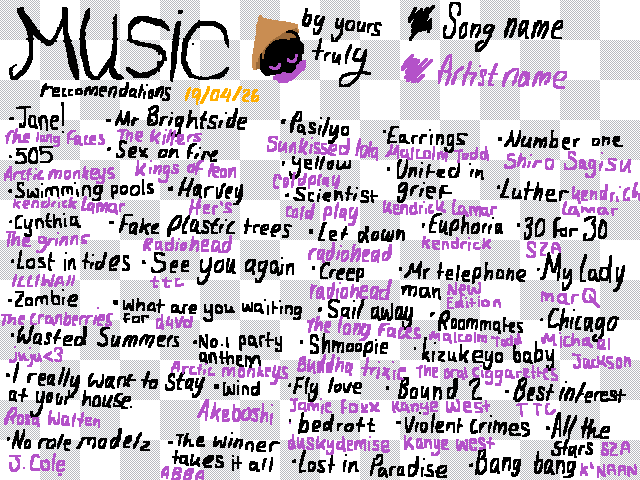 MUSIC by yours truly Song name
Artist name
reccomendations 19/04/26
·Jane! ·Mr Brightside ·Pasilyo ·Earrings ·Number one
The long Faces The Killers Sunkissed lola Malcolm Todd Shiro SagiSu
·505 ·Sex on fire ·yellow ·United in grief
Arctic monkeys Kings of leon Coldplay Kendrick Lamar
·Swimming pools ·Harvey ·Scientist ·Luther
Kendrick Lamar Her's Cold play Kendrick Lamar
·Cynthia ·Fake plastic trees ·Let down ·Euphoria ·30 for 30
The grinns Radiohead radiohead kendrick SZA
·Lost in tides ·See you again ·Creep ·Mr telephone man ·My Lady
ILLIWAH ttc radiohead New Edition marQ
·Zombie ·What are you waiting for ·Sail away ·Roommates ·Chicago
The Cranberries d4vd The long Faces Malcolm Todd Michael Jackson
·Wasted Summers ·No.1 party anthem ·Shmoopie ·kizukeyo baby
juju<3 Arctic monkeys Buddha trixie The oral ciggarettes
·I really want to Stay at your house ·wind ·Fly love ·Bound 2 ·Best interest
Rosa Walten Akeboshi Jamie Foxx Kanye West TTC
·No role modelz ·The winner takes it all ·bedrott ·Violent Crimes ·All the Stars
J. Cole ABBA duskydemise Kanye west SZA
·Lost in Paradise ·Bang bang
K'NAAN